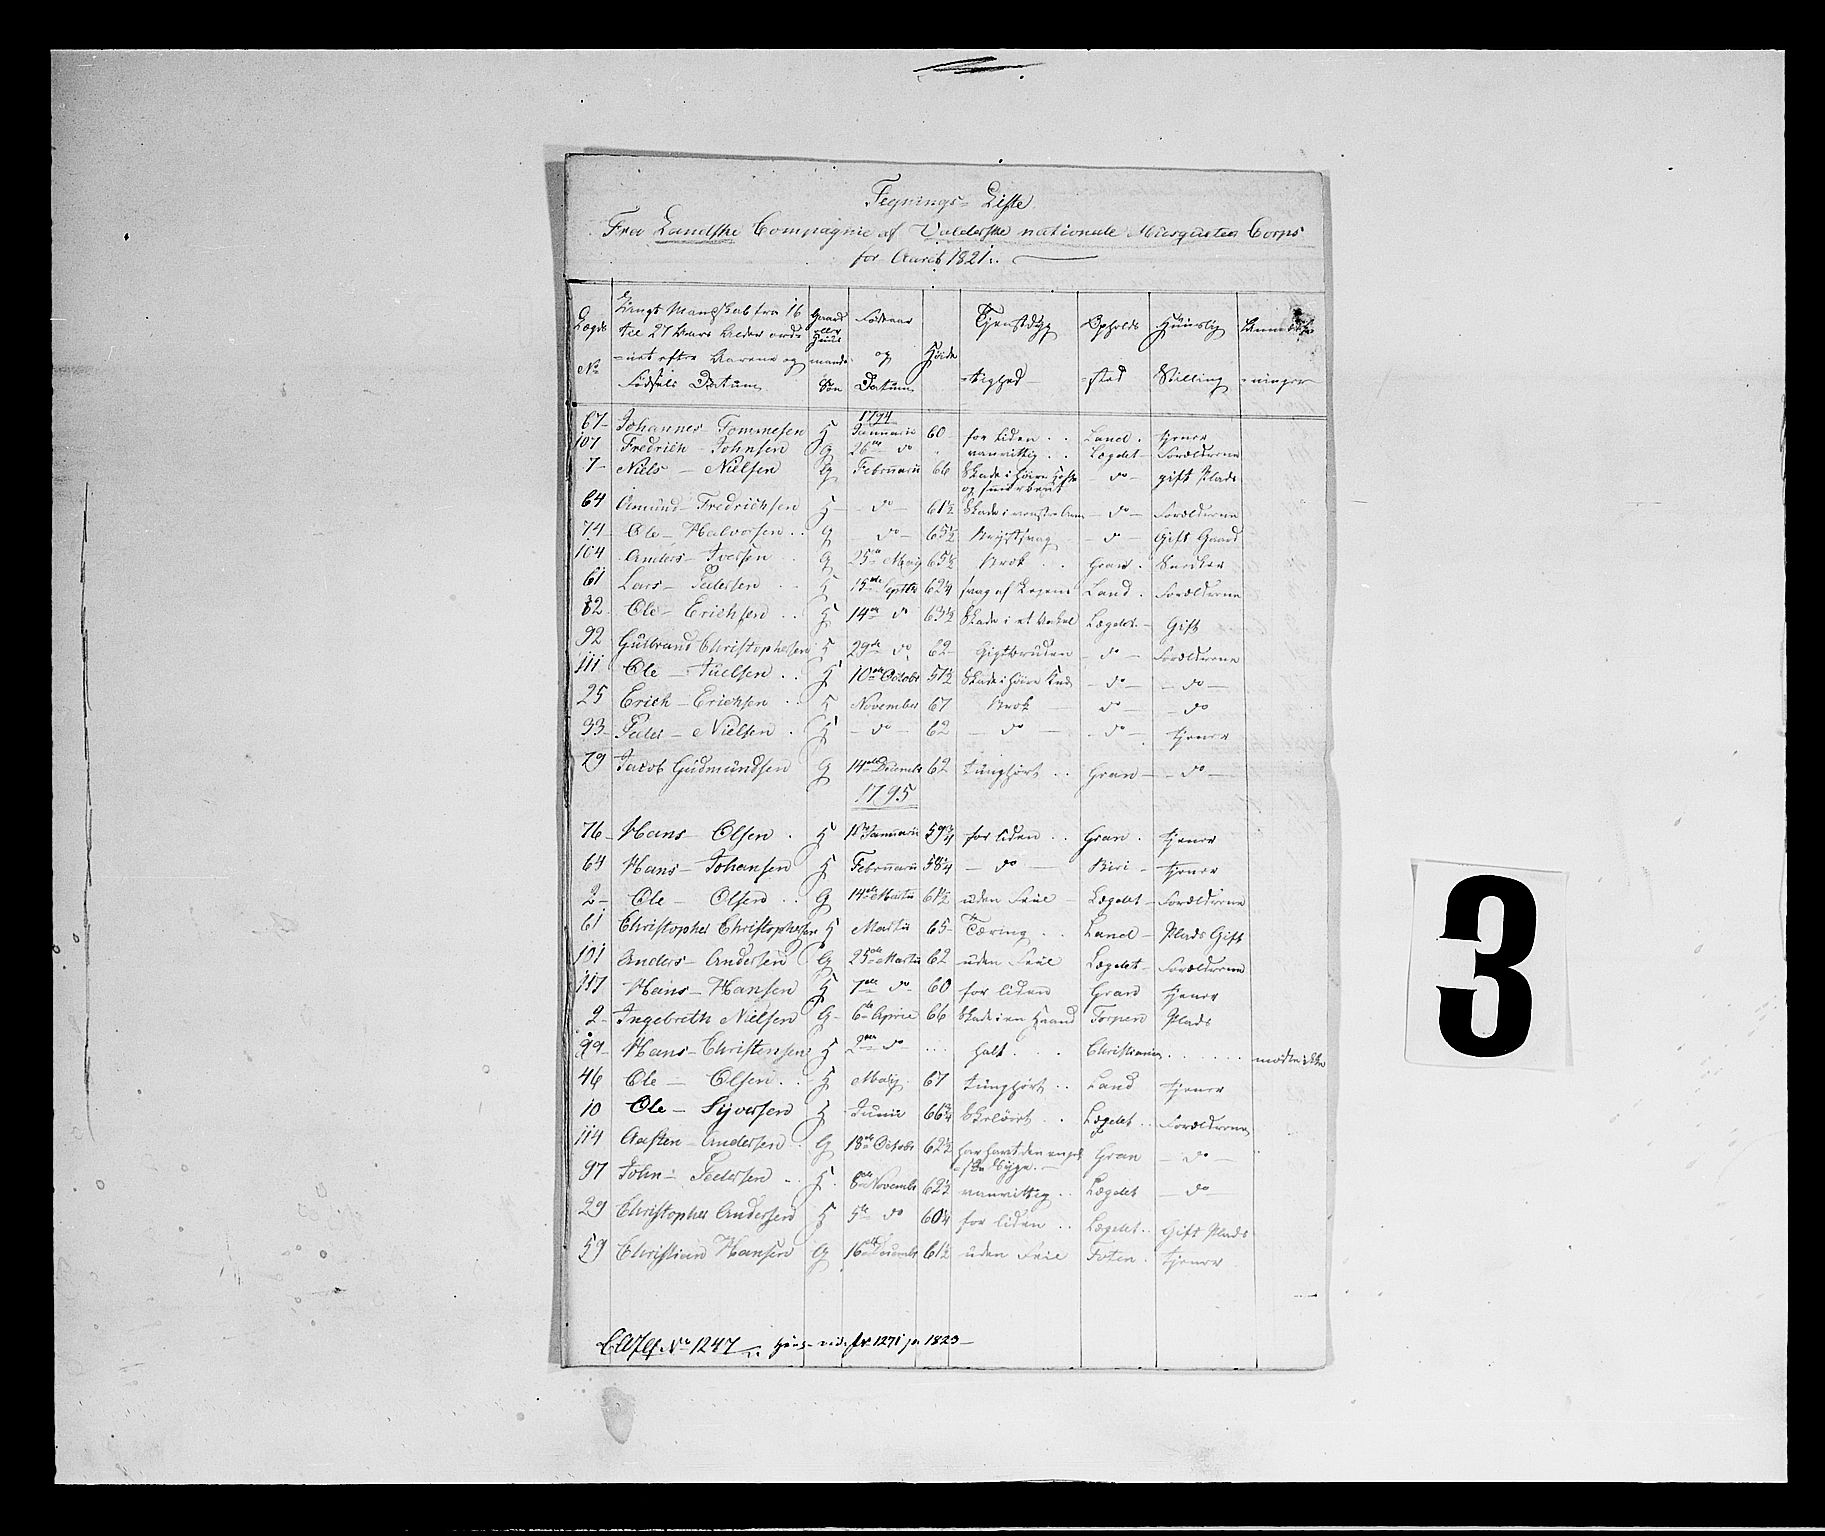 Tegnings- Liste
Fra Landske Compagnie af Valderske nationale Musqueteer Corps
for Aaret 1821.
Lægds No
Ungt Mandskab fra 16 til 27 Aars Alder ordnet efter Aarene og Fødsels Datum
Gaard eller Huusmands Søn
Fødeaar og Datum
Høide
Tjenstdygtighed
Opholdssted
Huuslig Stilling
Anmærkninger
1794
67 Johannes Tommesen H Januarii 60 for liden Land tjener
107 Fredrich Johnsen G 26de do vanvittig Lægdet Forældrene
7 Niels Nielsen G Februarii 66 Skade i høire Hofte og do gift Plads
64 Amund Fredrichsen H do 61½ Skade i venstre Arm do Forældrene
74 Ole Halvorsen G do 65½ Brystsvag do Gift Gaard
104 Anders Iversen G 25de May 65½ Brok Gran Snedker
61 Lars Pedersen H 15de Septbr 62¼ svag af Land Forældrene
82 Ole Erichsen H 14de do 63½ Skade i et Ankel Lægdet Gift
92 Gulbrand Christophersen H 29de do 62 Gigtbruden do Forældrene
111 Ole Nielsen H 10de Octobr 51½ Skade i høire Knæ do do
25 Erich Erichsen H November 67 Brok do do
33 Peder Nielsen H do 62 do do tjener
79 Jacob Gudmundsen G 14de Decembr 62 tunghørt Gran do
1795
76 Hans Olsen H Januarii 59¾ for liden Gran tjener
64 Hans Johansen H Februarii 58¼ do Biri tjener
2 Ole Olsen G 14de Martii 61½ uden Feil Lægdet Forældrene
61 Christopher Christophersen H Martii 65 Tæring Land Plads Gift
101 Anders Andersen G 25de Martii 62 uden Feil Lægdet Forældrene
117 Hans Hansen H 7de do 60 for liden Gran tjener
2 Ingebreth Nielsen G 6te April 66 Skade i en Haand Torpen Plads
99 Hans Christensen H 9de do halt Christiania mødte ikke
46 Ole Olsen H May 67 tunghørt Land tjener
10 Ole Syversen H Junii 66¾ Skeløiet Lægdet Forældrene
114 Aasten Andersen G 18de Octobr 62½ har havt den engelske Syge Gran do
97 John Pedersen H 8de Novembr 62½ vanvittig Lægdet do
29 Christopher Andersen H 5te do 60¼ for liden Lægdet Gift Plads
59 Christian Hansen G 16de Decembr 61½ uden Feil Toten tjener
No 1247 1271 pr 1823
3